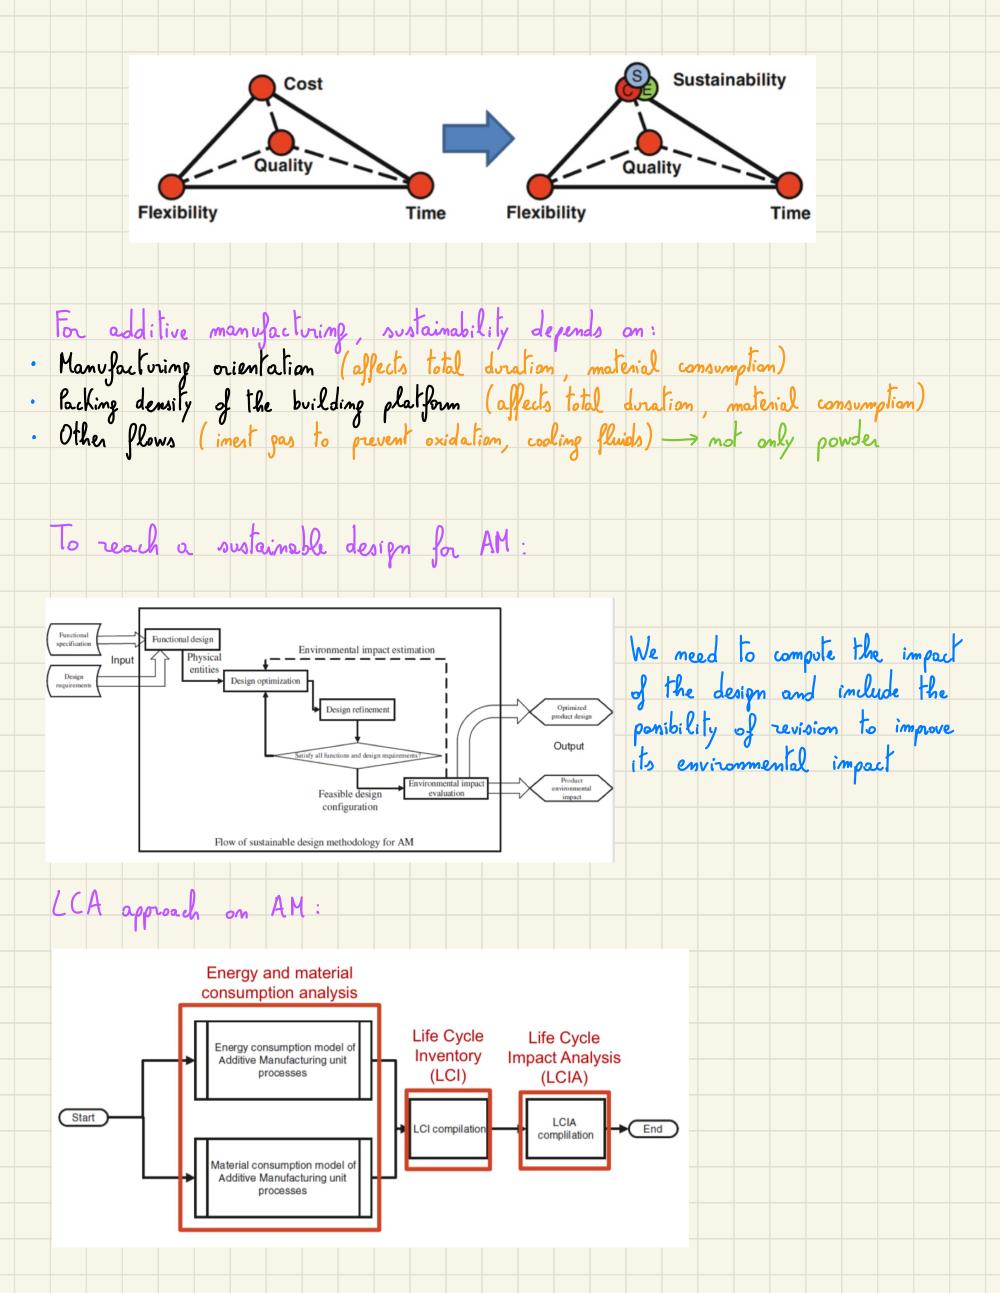 Cost
Quality
Flexibility
Time
S
C
E
Sustainability
Quality
Flexibility
Time
For additive manufacturing, sustainability depends on:
• Manufacturing orientation (affects total duration, material consumption)
• Packing density of the building platform (affects total duration, material consumption)
• Other flows (inert gas to prevent oxidation, cooling fluids) → not only powder
To reach a sustainable design for AM:
Functional
specification
Input
Design
requirements
Functional design
Physical
entities
Environmental impact estimation
Design optimization
Design refinement
Satisfy all functions and design requirements?
Feasible design
configuration
Environmental impact
evaluation
Optimized
product design
Output
Product
environmental
impact
Flow of sustainable design methodology for AM
We need to compute the impact
of the design and include the
possibility of revision to improve
its environmental impact
LCA approach on AM:
Energy and material
consumption analysis
Start
Energy consumption model of
Additive Manufacturing unit
processes
Material consumption model of
Additive Manufacturing unit
processes
Life Cycle
Inventory
(LCI)
LCI compilation
Life Cycle
Impact Analysis
(LCIA)
LCIA
complilation
End